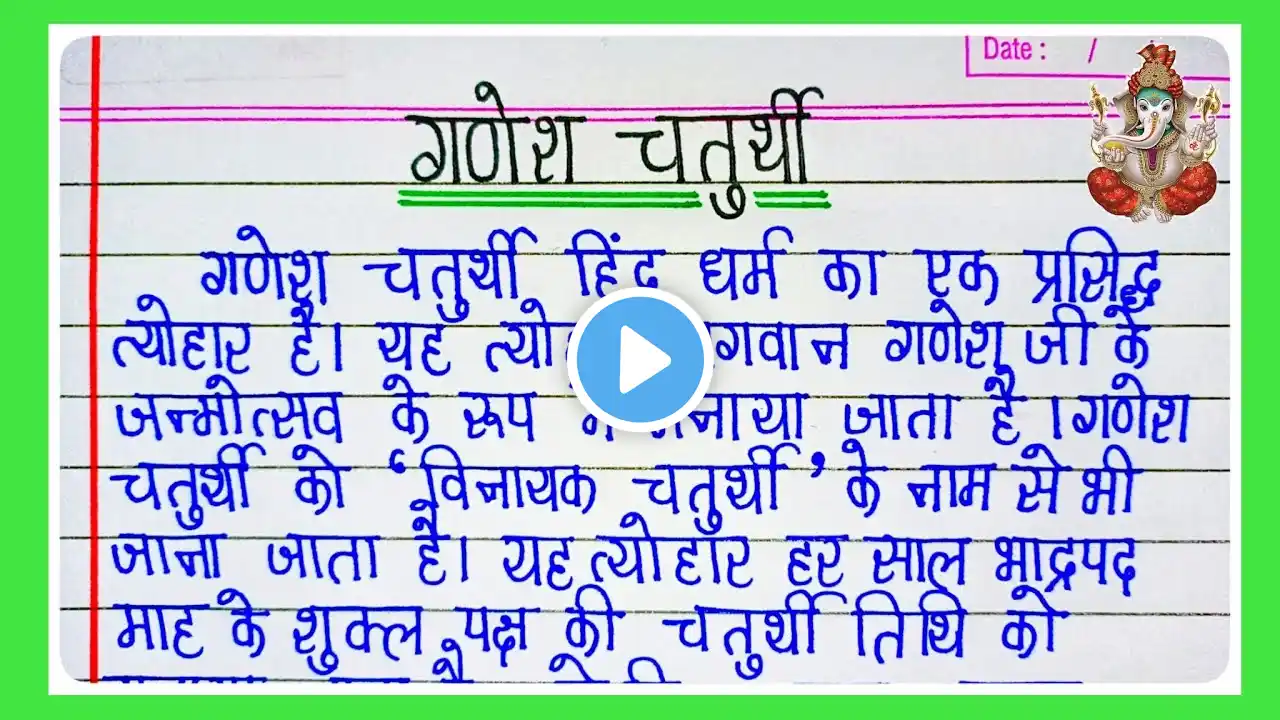 Date : /
गणेश चतुर्थी
गणेश चतुर्थी हिंदू धर्म का एक प्रसिद्ध
त्योहार है। यह गणेश जी के
जन्मोत्सव के रूप जाता है । गणेश
चतुर्थी को ‘विनायक चतुर्थी’ के नाम से भी
जाना जाता है। यह त्योहार हर साल भाद्रपद
माह के शुक्ल पक्ष की चतुर्थी तिथि को